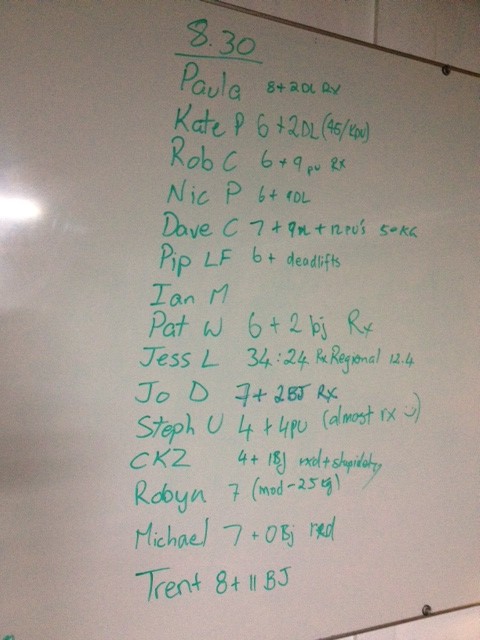 8.30
Paula 8+2DL Rx
Kate P 6+2DL (45/kpu)
Rob C 6+9pu Rx
Nic P 6+9DL
Dave C 7+9DL+12PU's 50KG
Pip LF 6+ deadlifts
Ian M
Pat W 6+2 bj Rx
Jess L 34:24 Rx Regional 12.4
Jo D 7+2BJ RX
Steph U 4+4pu (almost rx )
CKZ 4+18j rxd+stupidity
Robyn 7 (mod-25kg)
Michael 7+0Bj rxd
Trent 8+11BJ